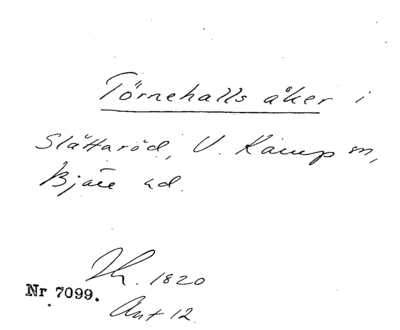 Törnehalls åker i
Slättaröd, V. Karup sn,
Bjäre hd.
Th. 1820
Nr 7099.
Ant 12.